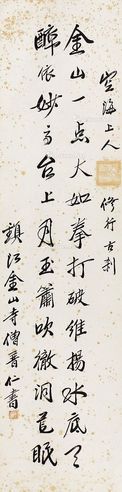 空海上人 修行古刹
金山一点大如拳打破维扬水底天
醉依妙高台上月玉箫吹徹洞龍眠
鎮江金山寺僧普仁書